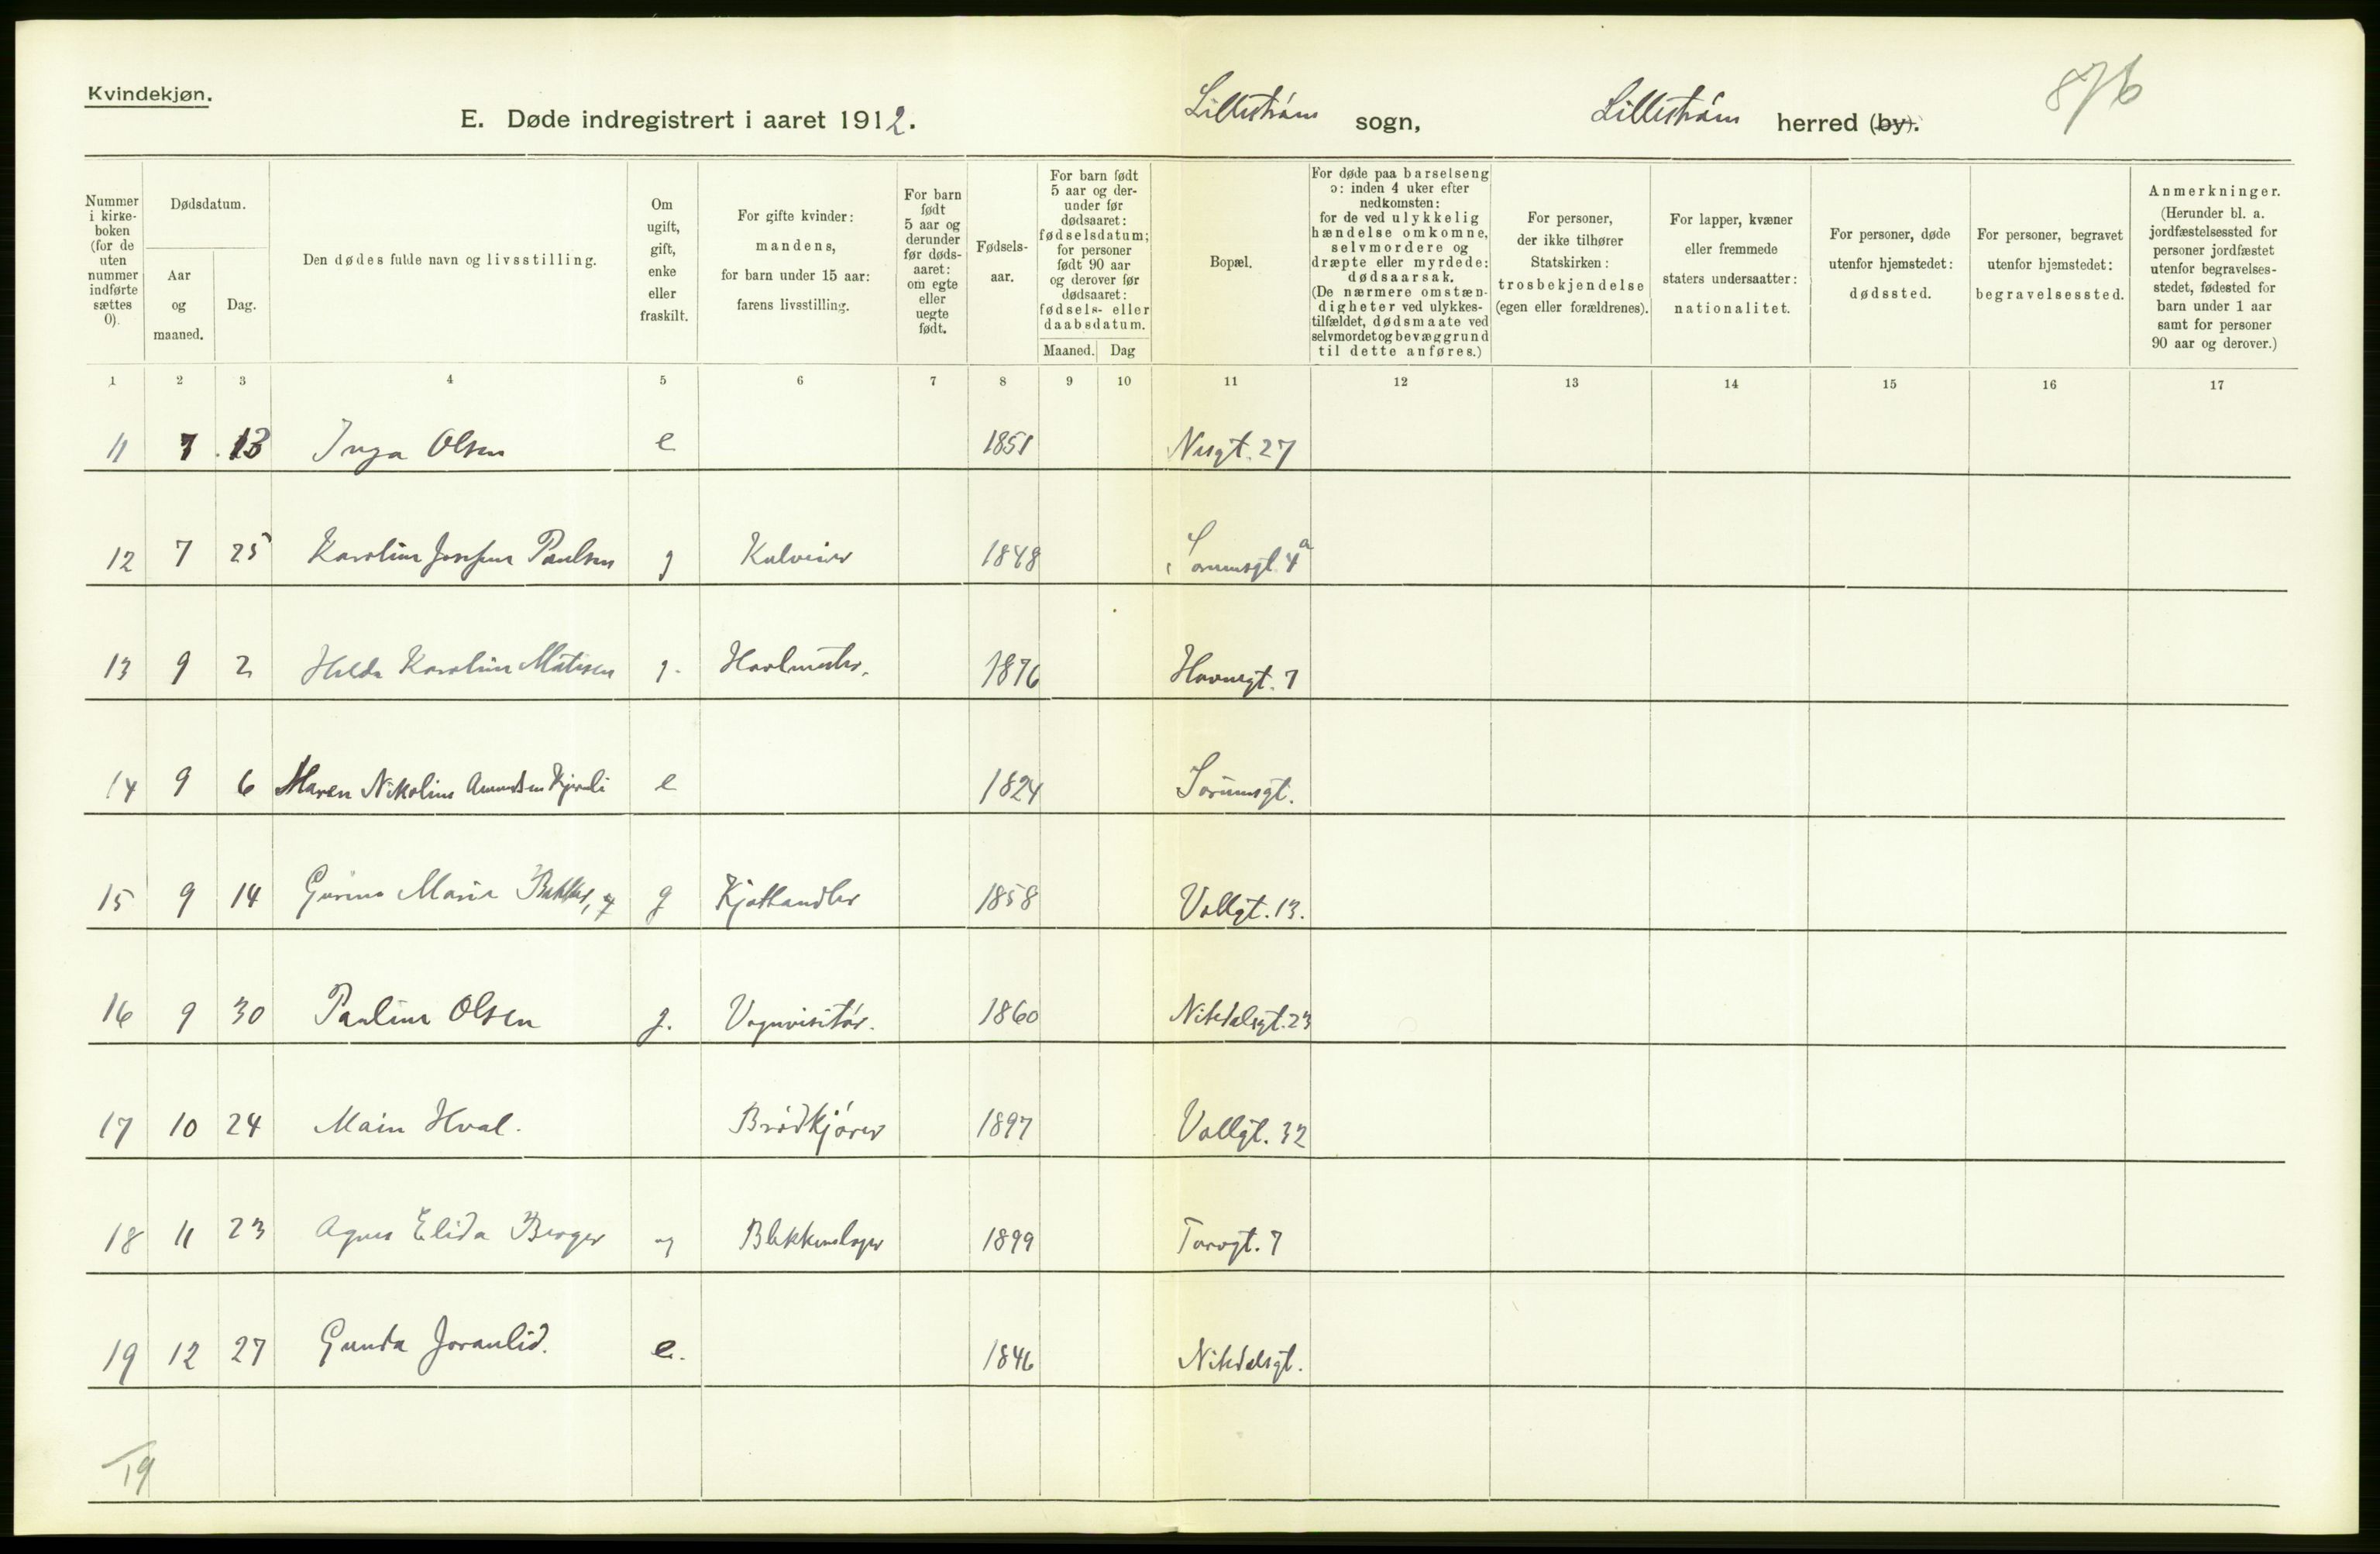 Kvindekjøn.
E. Døde indregistrert i aaret 1912.
Lillestrøm sogn, Lillestrøm herred (by).
876
Nummer i kirke-boken (for de uten nummer indførte sættes 0).
Dødsdatum.
Aar og maaned.
Dag.
Den dødes fulde navn og livsstilling.
Om ugift, gift, enke eller fraskilt.
For gifte kvinder: mandens, for barn under 15 aar: farens livsstilling.
For barn født 5 aar og derunder før døds-aaret: om egte eller uegte født.
Fødsels-aar.
For barn født 5 aar og der-under før dødsaaret: fødselsdatum; for personer født 90 aar og derover før dødsaaret: fødsels- eller daabsdatum.
Maaned. Dag
Bopæl.
For døde paa barselseng ɔ: inden 4 uker efter nedkomsten: for de ved ulykkelig hændelse omkomne, selvmordere og dræpte eller myrdede: dødsaarsak. (De nærmere omstæn-digheter ved ulykkes-tilfældet, dødsmaate ved selvmordet og bevæggrund til dette anføres.)
For personer, der ikke tilhører Statskirken: trosbekjendelse (egen eller forældrenes).
For lapper, kvæner eller fremmede staters undersaatter: nationalitet.
For personer, døde utenfor hjemstedet: dødssted.
For personer, begravet utenfor hjemstedet: begravelsessted.
Anmerkninger. (Herunder bl. a. jordfæstelsessted for personer jordfæstet utenfor begravelses-stedet, fødested for barn under 1 aar samt for personer 90 aar og derover.)
1 2 3 4 5 6 7 8 9 10 11 12 13 14 15 16 17
11 7 13 Inga Olsen e 1851 Nygt. 27
12 7 25 Karoline Josefine Paulsen g 1848 Sørumsgt. 4a
13 9 2 Hilda Karoline Matisen g. Høvlmester. 1876 Havnegt. 7
14 9 6 Maren Nikoline Amundsen e 1824 Sørumsgt.
15 9 14 Gurine Marie g Kjøthandler 1858 Vollgt. 13.
16 9 30 Pauline Olsen g. Vognvisitør. 1860 Nitedalsgt. 23
17 10 24 Hval. Brødkjører 1897 Vollgt. 32
18 11 23 Agnes Elida Berger ug Blikkenslager 1899 Torvgt. 7
19 12 27 Gunda Joranlid. e. 1846 Nitedalsgt.
19